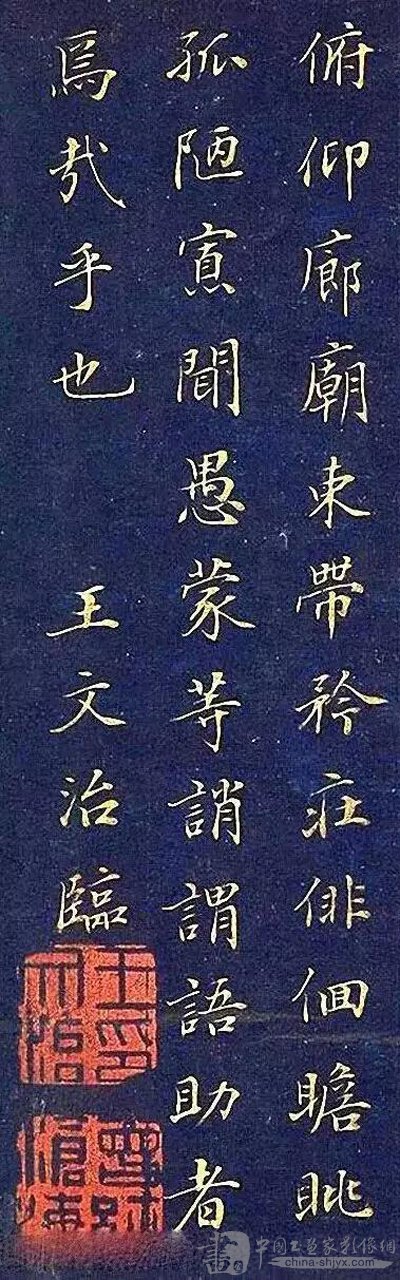 俯仰廊廟束帶矜庄俳佪瞻眺
孤陋寡聞愚蒙等誚謂語助者
焉哉乎也 王文治臨
王文治印
曾經滄海
書 中国书画家影像網
china-shjyx.com